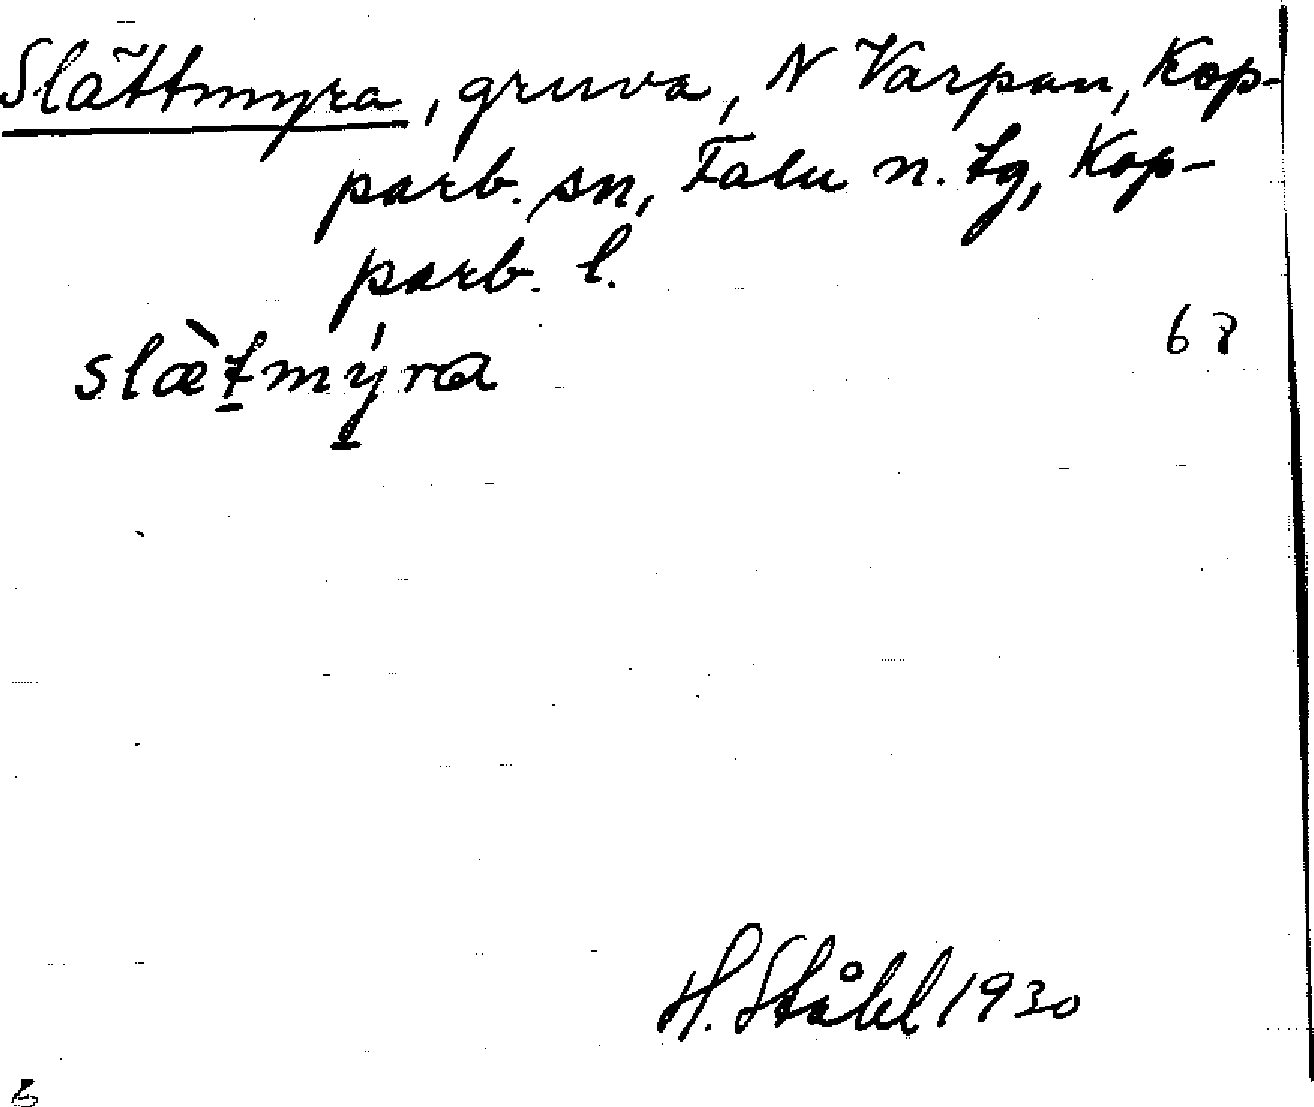 Slättmyra, gruva, N Varpan, Kop-
parb. sn, Falu n. tg, Kop-
parb. l.
68
slæ̀t̠mý̠ra
H. Ståhl 1930